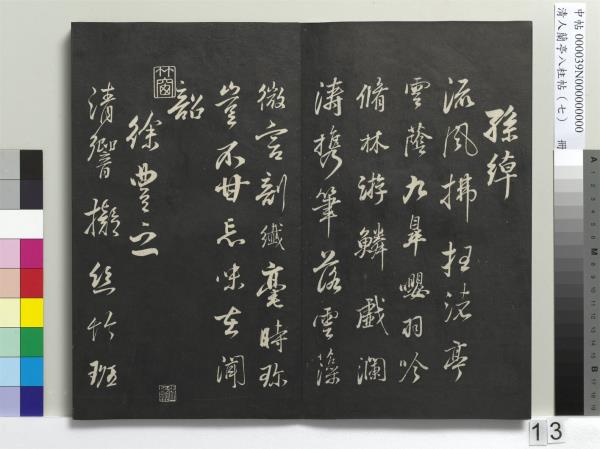 中帖 000039N000000000 冊
清人蘭亭八柱帖（七）
孫綽
流風拂枉渚亭
雲蔭九皋嚶羽吟
脩林游鱗戲瀾
濤攜筆落雲藻
微言剖纖毫時珍
豈不甘忘味在聞
韶
徐豐之
清響擬絲竹班
13